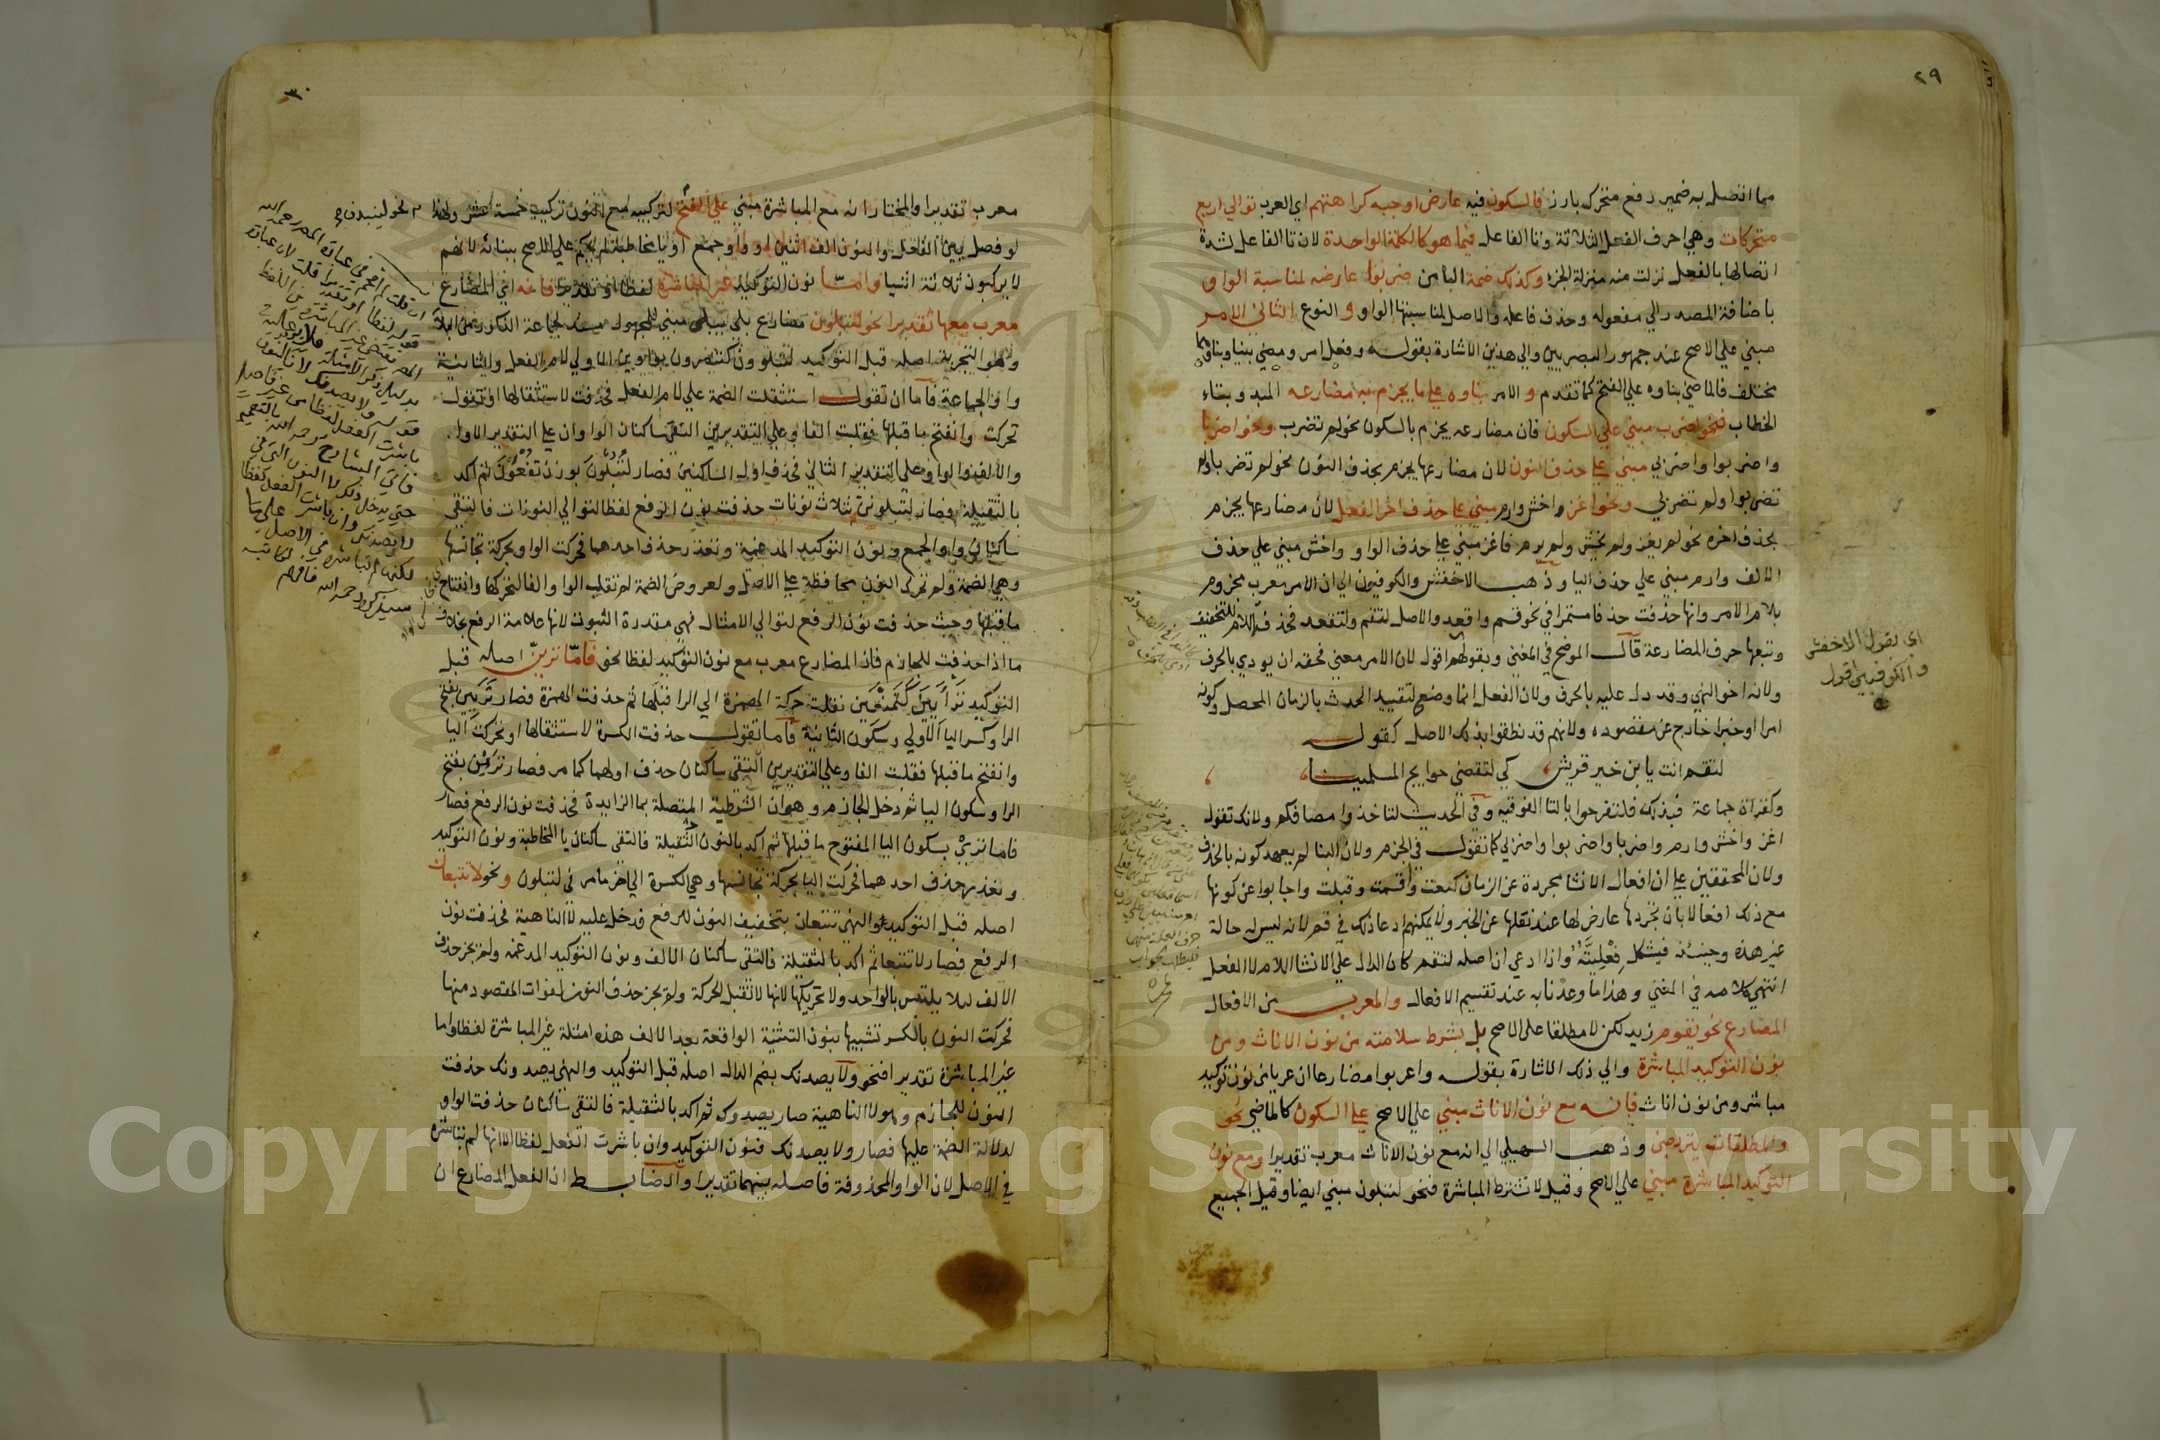 ٢٩
مما اتصل به ضمير رفع متحرك بارز فالسكون فيه عارض اوجبه كراهتهم اي العرب توالي اربع
متحركات وهي احرف الفعل الثلاثة وتا الفاعل فيما هو كالكلمة الواحدة لان تا الفاعل لشدة
اتصالها بالفعل نزلت منه منزلة الجزء وكذلك ضمة البا من ضربوا عارضه لمناسبة الواو
باضافة المصدر الي مفعوله وحذف فاعله والاصل لمناسبتها الواو و النوع الثاني الامر
مبني علي الاصح عند جمهور البصريين والي هذين الاشارة بقوله وفعل امر ومضي بنيا وبناؤهما
مختلف فالماضي بناوه علي الفتح كما تقدم و الامر بناوه علي ما يجزم به مضارعه المبدو بتاء
الخطاب فنحو اضرب مبني علي السكون فان مضارعه يجزم بالسكون نحو لم تضرب ونحو اضربا
واضربوا واضربي مبني علي حذف النون لان مضارعها يجزم بحذف النون نحو لم تضربا ولم
تضربوا ولم تضربي ونحو اغز واخش وارم مبني علي حذف اخر الفعل لان مضارعها يجزم
بحذف اخره نحو لم يغز ولم يخش ولم يرم فاغز مبني علي حذف الواو واخش مبني علي حذف
الالف وارم مبني علي حذف اليا وذهب الاخفش والكوفيون الي ان الامر معرب مجزوم
بلام الامر وانها حذفت حذفا مستمرا في نحو قم واقعد والاصل لتقم ولتقعد فحذف اللام للتخفيف
وتبعها حرف المضارعة قال الموضح في المغني وبقولهم اقول لان الامر معني فحقه ان يودي بالحرف
ولانه اخو النهي وقد دل عليه بالحرف ولان الفعل انما وضع لتقييد الحدث بالزمان المحصل وكونه
امرا او خبرا خارج عن مقصوده ولانهم قد نطقوا بذلك الاصل كقوله
لتقم انت يا بن خير قريش كي لتقضي حوايج المسلمينا
وكقراة جماعة فبذلك فلتفرحوا بالتا الفوقيه وفي الحديث لتاخذوا مصافكم ولانك تقول
اغز واخش وارم واضربا واضربوا واضربي كما تقول في الجزم ولان البنا لم يعهد كونه بالحذف
ولان المحققين علي ان افعال الانشا مجردة عن الزمان كبعت واقسمت وقبلت واجابوا عن كونها
مع ذلك افعالا بان تجردها عارض لها عند نقلها عن الخبر ولا يمكنهم ادعا ذلك في قم لانه ليس له حالة
غير هذه وحينئذ فيشكل فعليته واذا ادعي ان اصله لتقم كان الدال علي الانشا اللام لا الفعل
انتهي كلامه في المغني وهذا ما وعدنا به عند تقسيم الافعال والمعرب من الافعال
المضارع نحو يقوم زيد لكن لا مطلقا علي الاصح بل بشرط سلامته من نون الاناث ومن
نون التوكيد المباشرة والي ذلك الاشارة بقوله واعربوا مضارعا ان عريا من نون توكيد
مباشر ومن نون اناث فانه مع نون الاناث مبني علي الاصح علي السكون كالماضي نحو
والمطلقات يتربصن وذهب السهيلي الي انه مع نون الاناث معرب تقديرا ومع نون
التوكيد المباشرة مبني علي الاصح وقيل لا تشترط المباشرة فنحو لتبلون مبني ايضا وقيل الجميع
اي بقول الاخفش
والكوفيين اقول
٣٠
معرب تقديرا والمختار انه مع المباشرة مبني علي الفتح لتركيبه مع النون تركيب خمسة عشر ولهذا
لو فصل بين الفعل والنون الف اثنين او واو جمع او يا مخاطبة لم يحكم علي الاصح ببنائه لانهم
لا يركبون ثلاثة اشيا واما نون التوكيد غير المباشرة لفظا او تقديرا فانه اي المضارع
معرب معها تقديرا نحو لتبلون مضارع بلي يبلي مبني للمجهول مسند لجماعة الذكور من البلا
وهو التجربة اصله قبل التوكيد لتبلوون كتنصرون بواوين الاولي لام الفعل والثانية
واو الجماعة فاما ان تقول استثقلت الضمة علي لام الفعل فحذفت لاستثقالها او تقول
تحركت وانفتح ما قبلها فقلبت الفا وعلي التقديرين التقي ساكنان الواوان علي التقدير الاول
والالف والواو وعلي التقدير الثاني فحذف اول الساكنين فصار لتبلون بوزن تفعون ثم اكد
بالثقيلة فصار لتبلونن بثلاث نونات حذفت نون الرفع لفظا لتوالي النونات فالتقي
ساكنان واو الجمع ونون التوكيد المدغمة وتعذر حذف احدهما فحركت الواو بحركة تجانسها
وهي الضمة ولم تحرك النون محافظة علي الاصل ولعروض الضمة لم تقلب الواو الفا لتحركها وانفتاح
ما قبلها وحيث حذفت نون الرفع لتوالي الامثال فهي مقدرة الثبوت لانها علامة الرفع بخلاف
ما اذا حذفت للجازم فان المضارع معرب مع نون التوكيد لفظا نحو فاما ترين اصله قبل
التوكيد ترايين كتمنعين نقلت حركة الهمزة الي الرا قبلها ثم حذفت الهمزة فصار تريين بفتح
الرا وكسر اليا الاولي وسكون الثانية فاما تقول حذفت الكسرة لاستثقالها او تحركت اليا
وانفتح ما قبلها فقلبت الفا وعلي التقديرين التقي ساكنان حذف اولهما كما مر فصار ترين بفتح
الرا وسكون اليا ثم دخل الجازم وهو ان الشرطية المتصلة بما الزايدة فحذفت نون الرفع فصار
فاما تري بسكون اليا المفتوح ما قبلها ثم اكد بالنون الثقيلة فالتقي ساكنان يا المخاطبة ونون التوكيد
وتعذر حذف احدهما فحركت اليا بحركة تجانسها وهي الكسرة الي اخر ما مر في لتبلون ونحو لا تتبعان
اصله قبل التوكيد والنهي تتبعان بتخفيف النون للرفع فدخل عليه لا الناهية فحذفت نون
الرفع فصار لا تتبعا ثم اكد بالثقيلة فالتقي ساكنان الالف ونون التوكيد المدغمه ولم يجز حذف
الالف ليلا يلتبس بالواحد ولا تحريكها لانها لا تقبل الحركة ولم يجز حذف النون لفوات المقصود منها
فحركت النون بالكسر تشبيها بنون التثنية الواقعة بعد الالف هذه امثلة غير المباشرة لفظا واما
غير المباشرة تقديرا فنحو ولا يصدنك بضم الدال اصله قبل التوكيد والنهي يصدونك حذفت
النون للجازم وهو لا الناهية صار يصدوك ثم اكد بالثقيلة فالتقي ساكنان حذفت الواو
لدلالة الضمة عليها فصار ولا يصدنك فنون التوكيد وان باشرت الفعل لفظا الا انها لم تباشره
في الاصل لان الواو المحذوفة فاصله بينهما تقديرا والضابط ان الفعل المضارع ان
Copyright © King Saud University